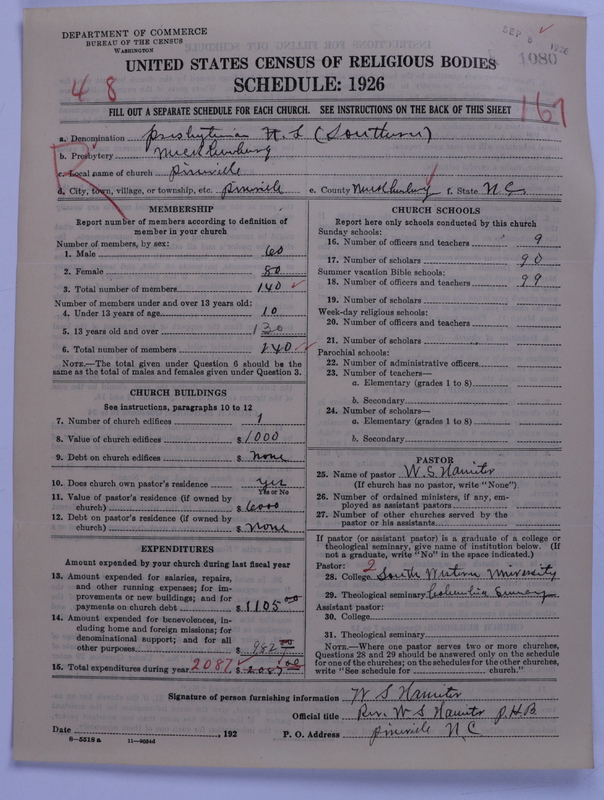 DEPARTMENT OF COMMERCE
BUREAU OF THE CENSUS
WASHINGTON
SEP 8 1926
1080
UNITED STATES CENSUS OF RELIGIOUS BODIES
SCHEDULE: 1926
4 8
FILL OUT A SEPARATE SCHEDULE FOR EACH CHURCH. SEE INSTRUCTIONS ON THE BACK OF THIS SHEET
167
R
a. Denomination Presbyterian U. S. (Southern)
b. Presbytery Mecklenburg
c. Local name of church Pineville
d. City, town, village, or township, etc. Pineville e. County Mecklenburg f. State N.C.
MEMBERSHIP
Report number of members according to definition of member in your church
Number of members, by sex:
1. Male 60
2. Female 80
3. Total number of members 140
Number of members under and over 13 years old:
4. Under 13 years of age 10
5. 13 years old and over 130
6. Total number of members 140
NOTE.—The total given under Question 6 should be the
same as the total of males and females given under Question 3.
CHURCH BUILDINGS
See instructions, paragraphs 10 to 12
7. Number of church edifices 1
8. Value of church edifices $ 1000
9. Debt on church edifices $ None
10. Does church own pastor's residence yes
Yes or No
11. Value of pastor's residence (if owned by
church) $ 6000
12. Debt on pastor's residence (if owned by
church) $ None
EXPENDITURES
Amount expended by your church during last fiscal year
13. Amount expended for salaries, repairs,
and other running expenses; for im-
provements or new buildings; and for
payments on church debt $ 1105 00
14. Amount expended for benevolences, in-
cluding home and foreign missions; for
denominational support; and for all
other purposes $ 982 00
15. Total expenditures during year 2087 $ 2087 00
CHURCH SCHOOLS
Report here only schools conducted by this church
Sunday schools:
16. Number of officers and teachers 9
17. Number of scholars 90
Summer vacation Bible schools:
18. Number of officers and teachers 99
19. Number of scholars
Week-day religious schools:
20. Number of officers and teachers
21. Number of scholars
Parochial schools:
22. Number of administrative officers
23. Number of teachers—
a. Elementary (grades 1 to 8)
b. Secondary
24. Number of scholars—
a. Elementary (grades 1 to 8)
b. Secondary
PASTOR
25. Name of pastor W. S.
(If church has no pastor, write "None")
26. Number of ordained ministers, if any, em-
ployed as assistant pastors
27. Number of other churches served by the
pastor or his assistants
If pastor (or assistant pastor) is a graduate of a college or
theological seminary, give name of institution below. (If
not a graduate, write "No" in the space indicated.)
Pastor: 2
28. College South Western University
29. Theological seminary Columbia Seminary
Assistant pastor:
30. College
31. Theological seminary
NOTE.—Where one pastor serves two or more churches,
Questions 28 and 29 should be answered only on the schedule
for one of the churches; on the schedules for the other churches,
write "See schedule for church."
Signature of person furnishing information W S
Official title Rev. W S
Date , 192 P. O. Address Pineville N C
8—5518 a